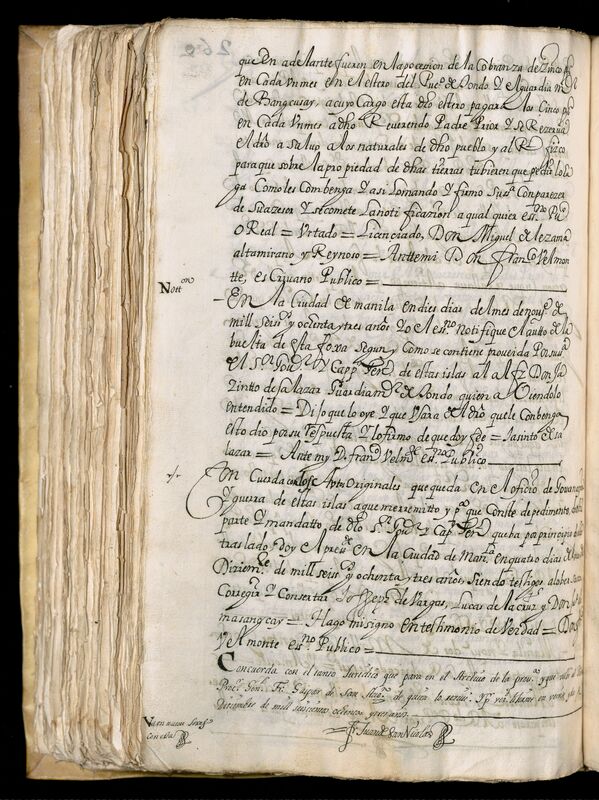 262
que en adelante fueren en la posesion de la cobranza de zinco ps
en Cada Vn mes en el estero del Pueo de tondo Y el guardia mr
de Bangcusay, a cuyo Cargo esta dho estero pagar los Cinco ps
en Cada Vn mes a dho Reuerendo Padre Prior Y se Rezerua
el dro a saluo a los naturales de dho pueblo y al Rl fizco
para que sobre la propiedad de dhas tierras tubieren que pedir lo
ga Como les Combenga Y asi lo mando y firmo Susa Con parezer
de Su azesor Y se comete la notificazion a qual quiera esno Puco
O Real = Vrtado = Licenciado, Don Miguel de lezana
altamirano y Reynoso = Ante mi D Don franco Velmon
tte, escriuano Publico =
Notton
En la Ciudad de manila en dies dias del mes de nou
mill seiso y ochenta y tres años Yo el esno notifique el autto de la
buelta de esta foxa segun y Como se contiene proueida Por su sa
el Sor Gour Y Cappn Gerl de estas islas al alfz Don Ja
zintto de salazar Guardia mr de tondo quien a Viendolo
entendido = Dijo que lo oye Y que Vsara del dro que le Conbenga
esto dio por su respuesta Y lo firmo de que doy fee = Jasinto de sa
lazar = Ante my D. franco Velmte esno Publico
Concuerda con los Autos Originales que queda en el oficio de Gouer
y guerra de estas islas a que me rremitto y pa que Conste de pedimento
parte Y mandatto de dho Sor Gour Y Capn Gerl que ba por principio
traslado, doy el presente en la Ciudad de Mana en quatro dias
Diziemre de mill seiso y ochenta y tres años, siendo testigos a lo ber
Corregir Y Consertar Joseph de Vargas, Lucas de la cruz y Don
masangcay = Hago mi signo en testimonio de Verdad =
Velmonte esno Publico =
Concuerda con el tanto Juridico que para en el Archiuo de la prova y que
Procr Genl Fr. Gaspar de San Augn de quien lo
Deziembre de mill setecientos ochenta y
Fr Juan de San Nicolas
Va en nueue foxas
con esta